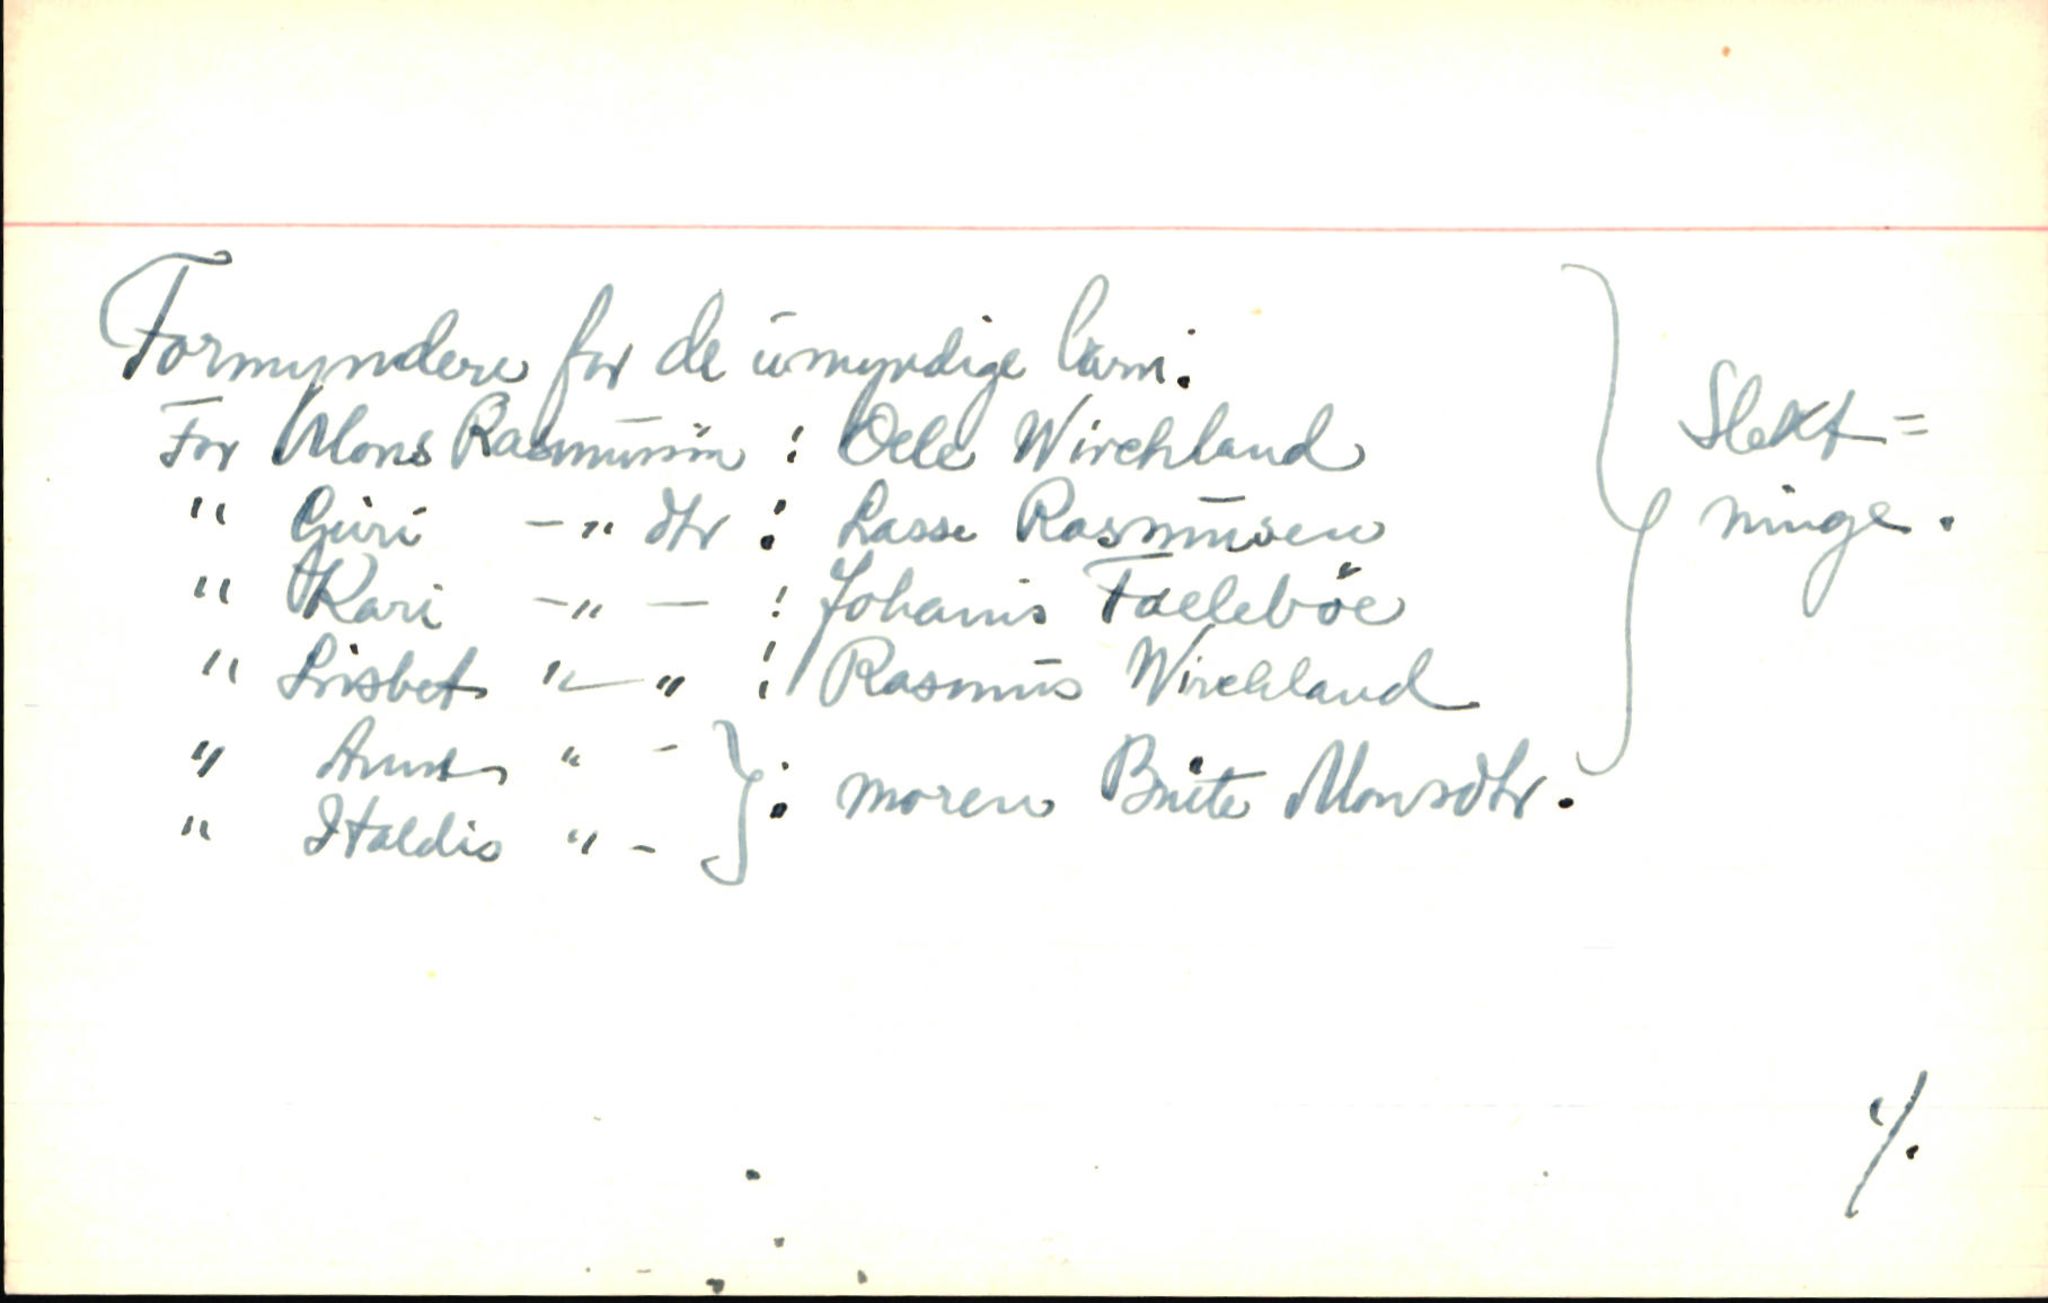 Formyndere for de umyndige barn:
For Mons Rasmussen : Oele Wirchland
" Guri -"- dtr : Lasse Rasmusen
" Kari -"- : Johanis Faeleböe
" Lisbet "-" : Rasmus Wirchland
" Anna " -
" Haldis " - } : moren Brite Monsdtr.
} Slekt=
ninge.
%